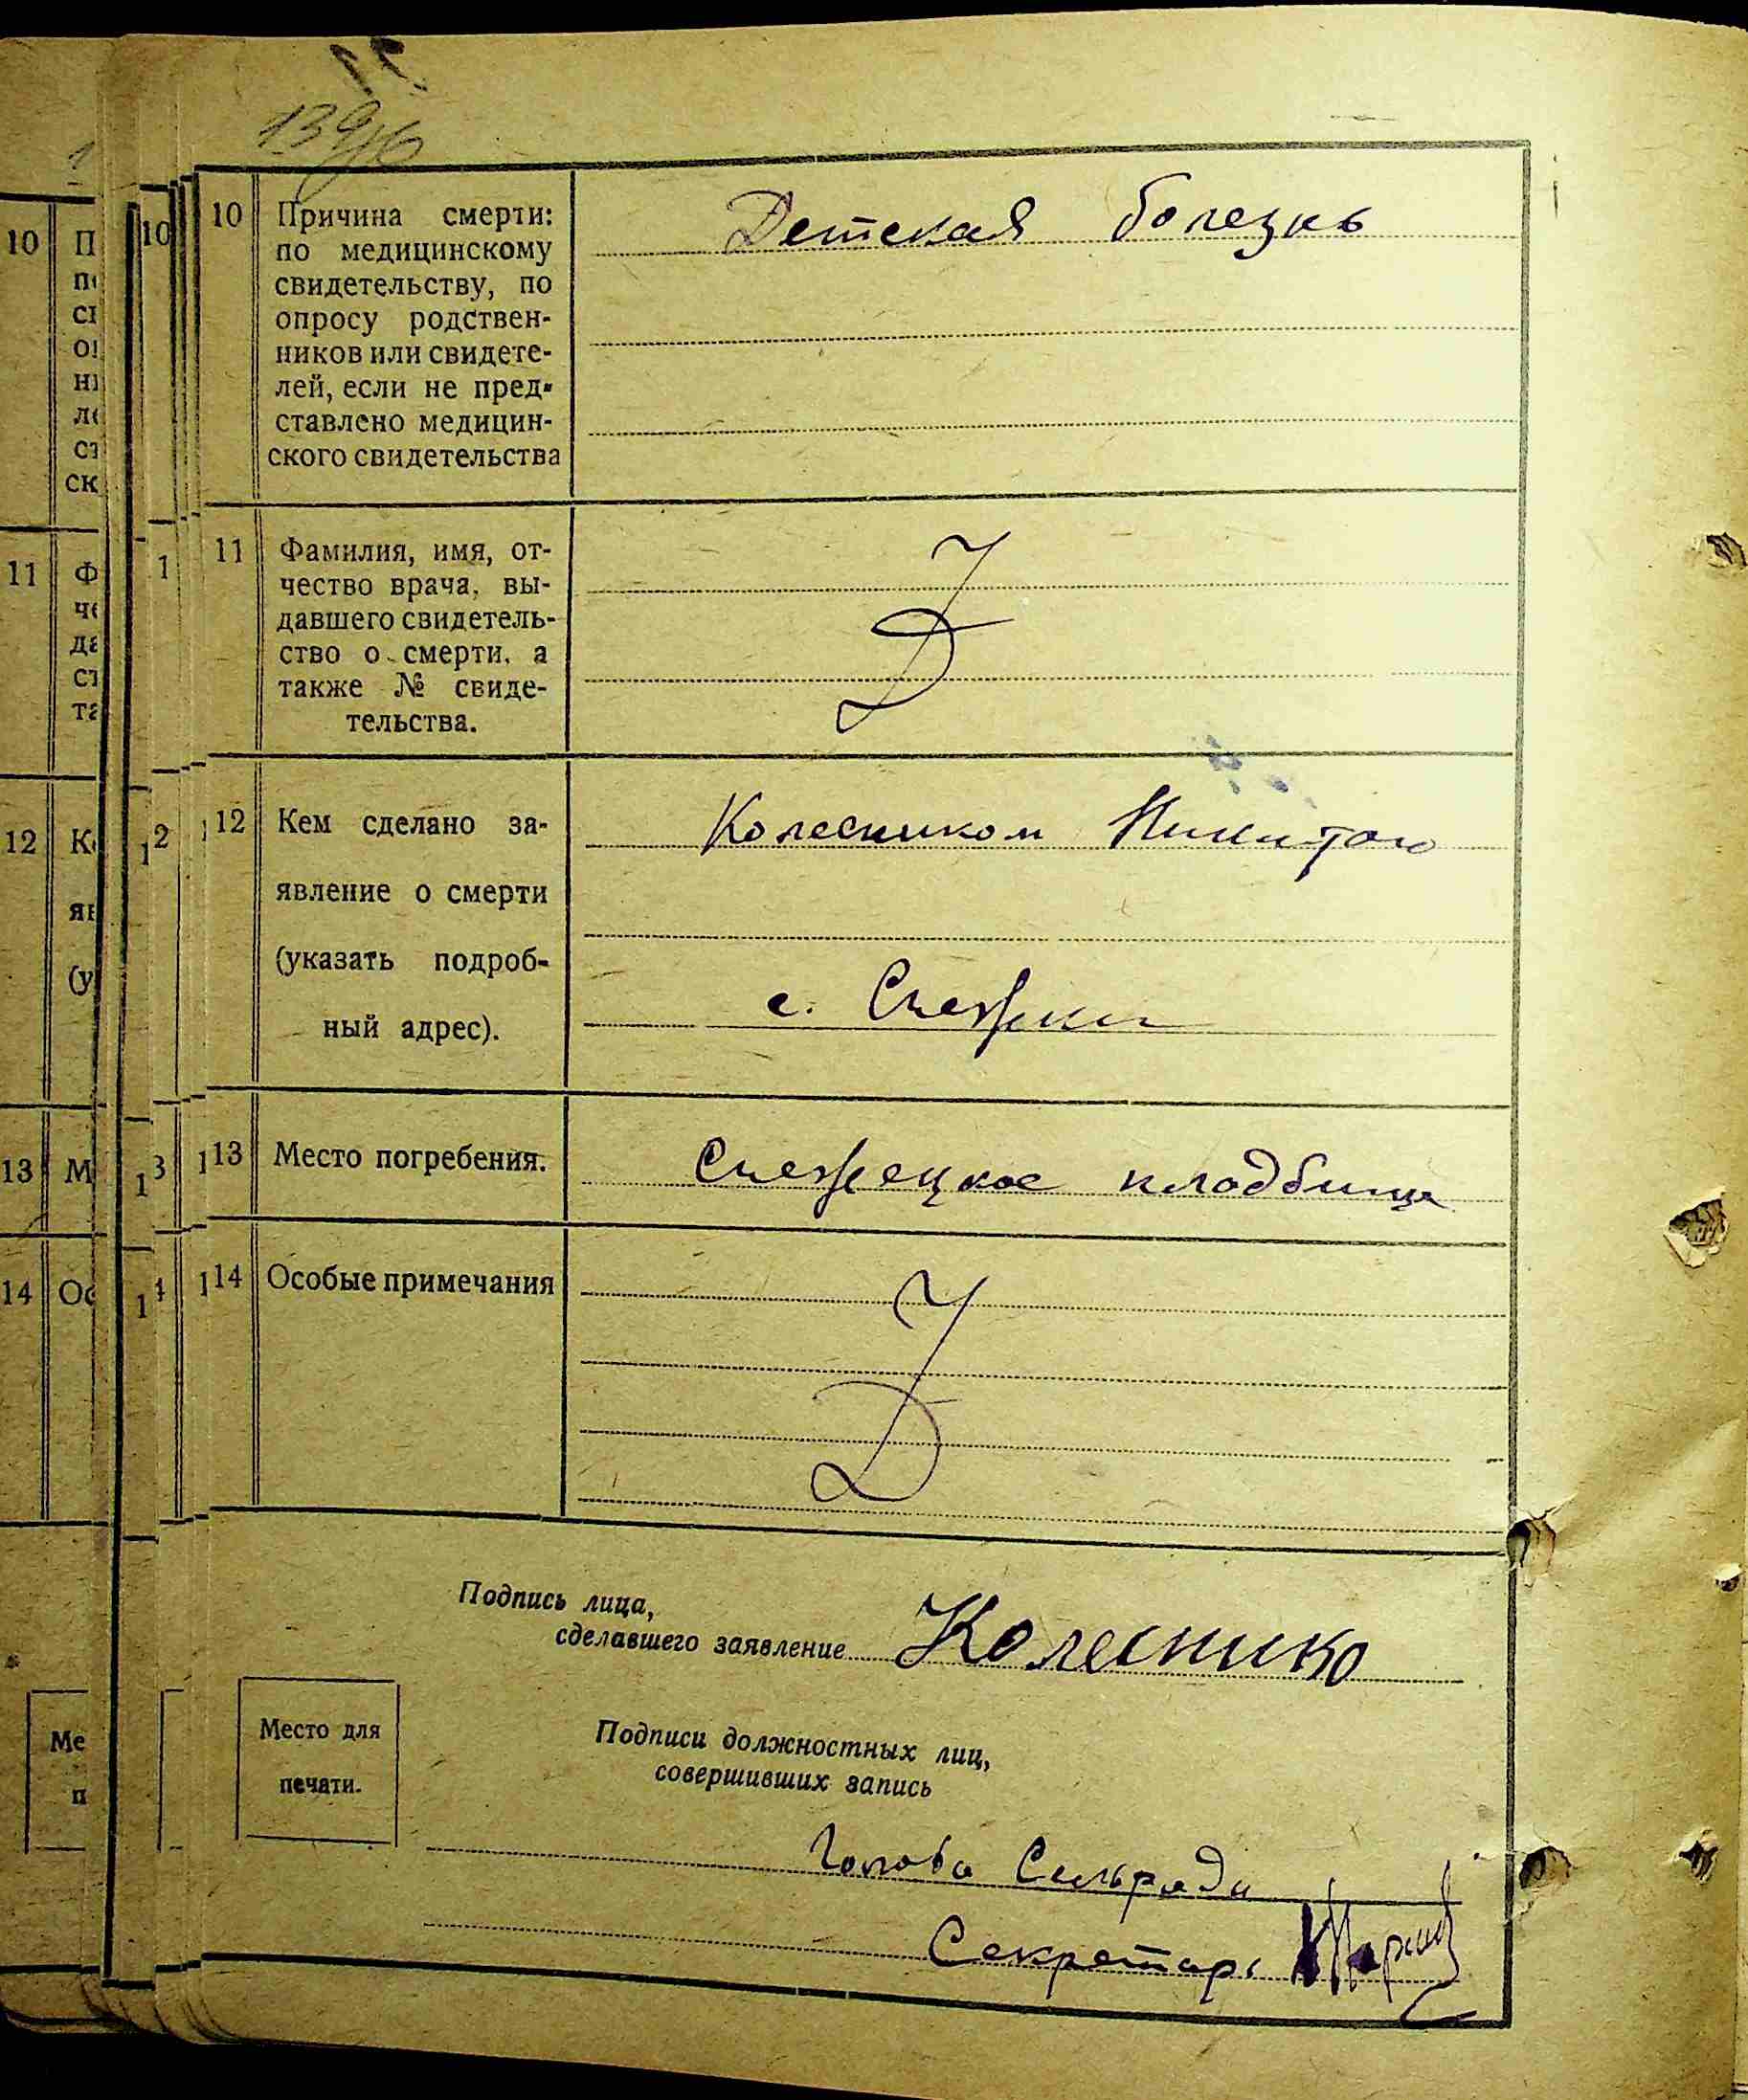 139
10 Причина смерти:
по медицинскому
свидетельству, по
опросу родствен-
ников или свидете-
лей, если не пред-
ставлено медицин-
ского свидетельства
Детская болезнь
11 Фамилия, имя, от-
чество врача, вы-
давшего свидетель-
ство о смерти, а
также № свиде-
тельства.
12 Кем сделано за-
явление о смерти
(указать подроб-
ный адрес).
Колесником Никитою
с. Снежки
13 Место погребения.
Снежецкое кладбище
14 Особые примечания
Подпись лица,
сделавшего заявление Колеснико
Место для
печати.
Подписи должностных лиц,
совершивших запись
Голова Сельради
Секретарь
10 П
11 Ф
12 К
13 М
14 Ос
Ме
п